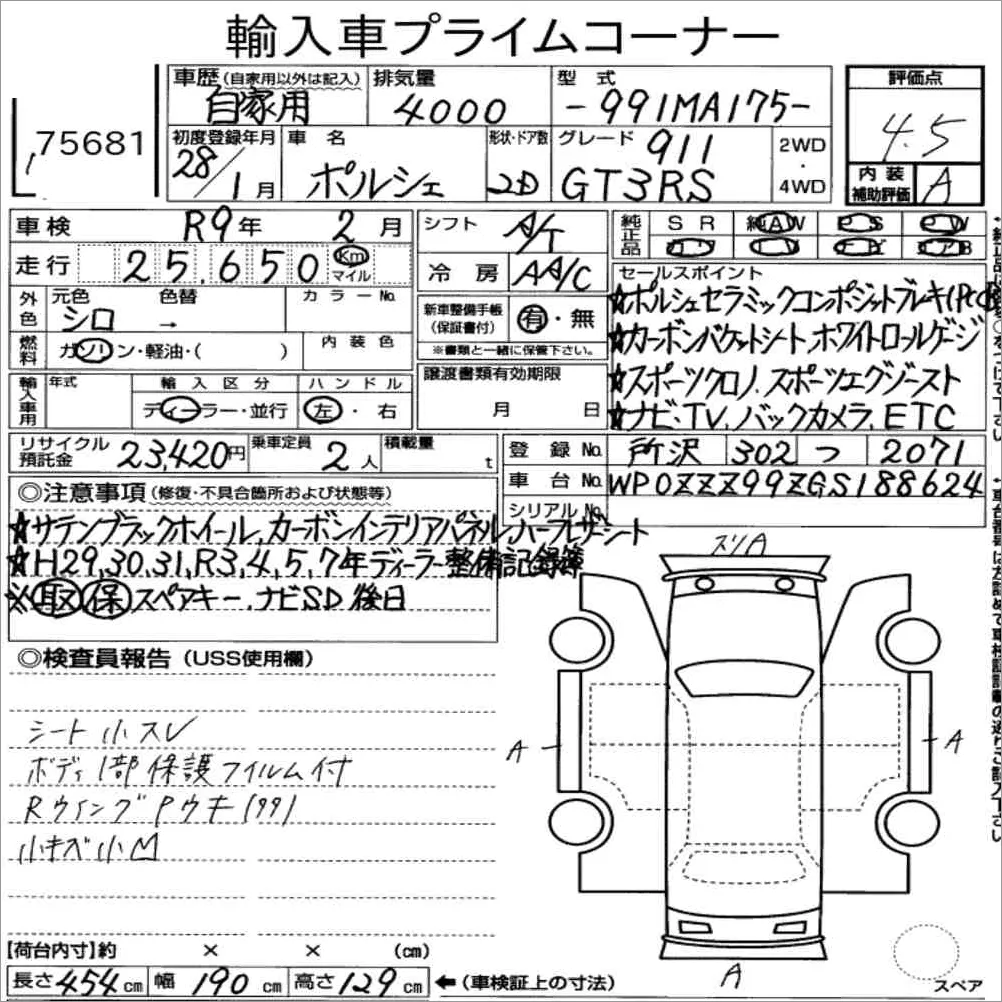 輸入車プライムコーナー
75681
車歴(自家用以外は記入) 排気量 型式 評価点
自家用 4000 -991MA175- 4.5
初度登録年月 車名 形状・ドア数 グレード 911 2WD・4WD 内装補助評価 A
28/1月 ポルシェ 2D GT3RS
車検 R9年 2月 シフト A/T 純正品 SR 純AW PS PW
走行 25,650 Km マイル 冷房 AA/C カワ TV ナビ エアB
外色 元色 色替 カラーNo. 新車整備手帳(保証書付) 有・無 セールスポイント
シロ → ※書類と一緒に保管下さい。 ☆ポルシェセラミックコンポジットブレーキ(PCCB)
燃料 ガソリン・軽油・( ) 内装色 ☆カーボンバケットシート,ホワイトロールゲージ
輸入車用 年式 輸入区分 ハンドル 譲渡書類有効期限 ☆スポーツクロノ,スポーツエグゾースト
ディーラー・並行 左・右 月 日 ☆ナビ,TV,バックカメラ,ETC
リサイクル預託金 23,420円 乗車定員 2人 積載量 t 登録No. 所沢 302 つ 2071
車台No. WP0ZZZ99ZGS188624
シリアルNo.
◎注意事項(修復・不具合箇所および状態等)
☆サテンブラックホイール,カーボンインテリアパネル,ハーフレザーシート
☆H29,30,31,R3,4,5,7年ディーラー整備記録簿
※取保スペアキー,ナビSD後日
◎検査員報告(USS使用欄)
シート小スレ
ボディ1部保護フィルム付
RウイングPウキ(99)
小キズ小凹
スリA
A
A
A
スペア
【荷台内寸】約 × × (cm)
長さ 454cm 幅 190cm 高さ 129cm ←(車検証上の寸法)